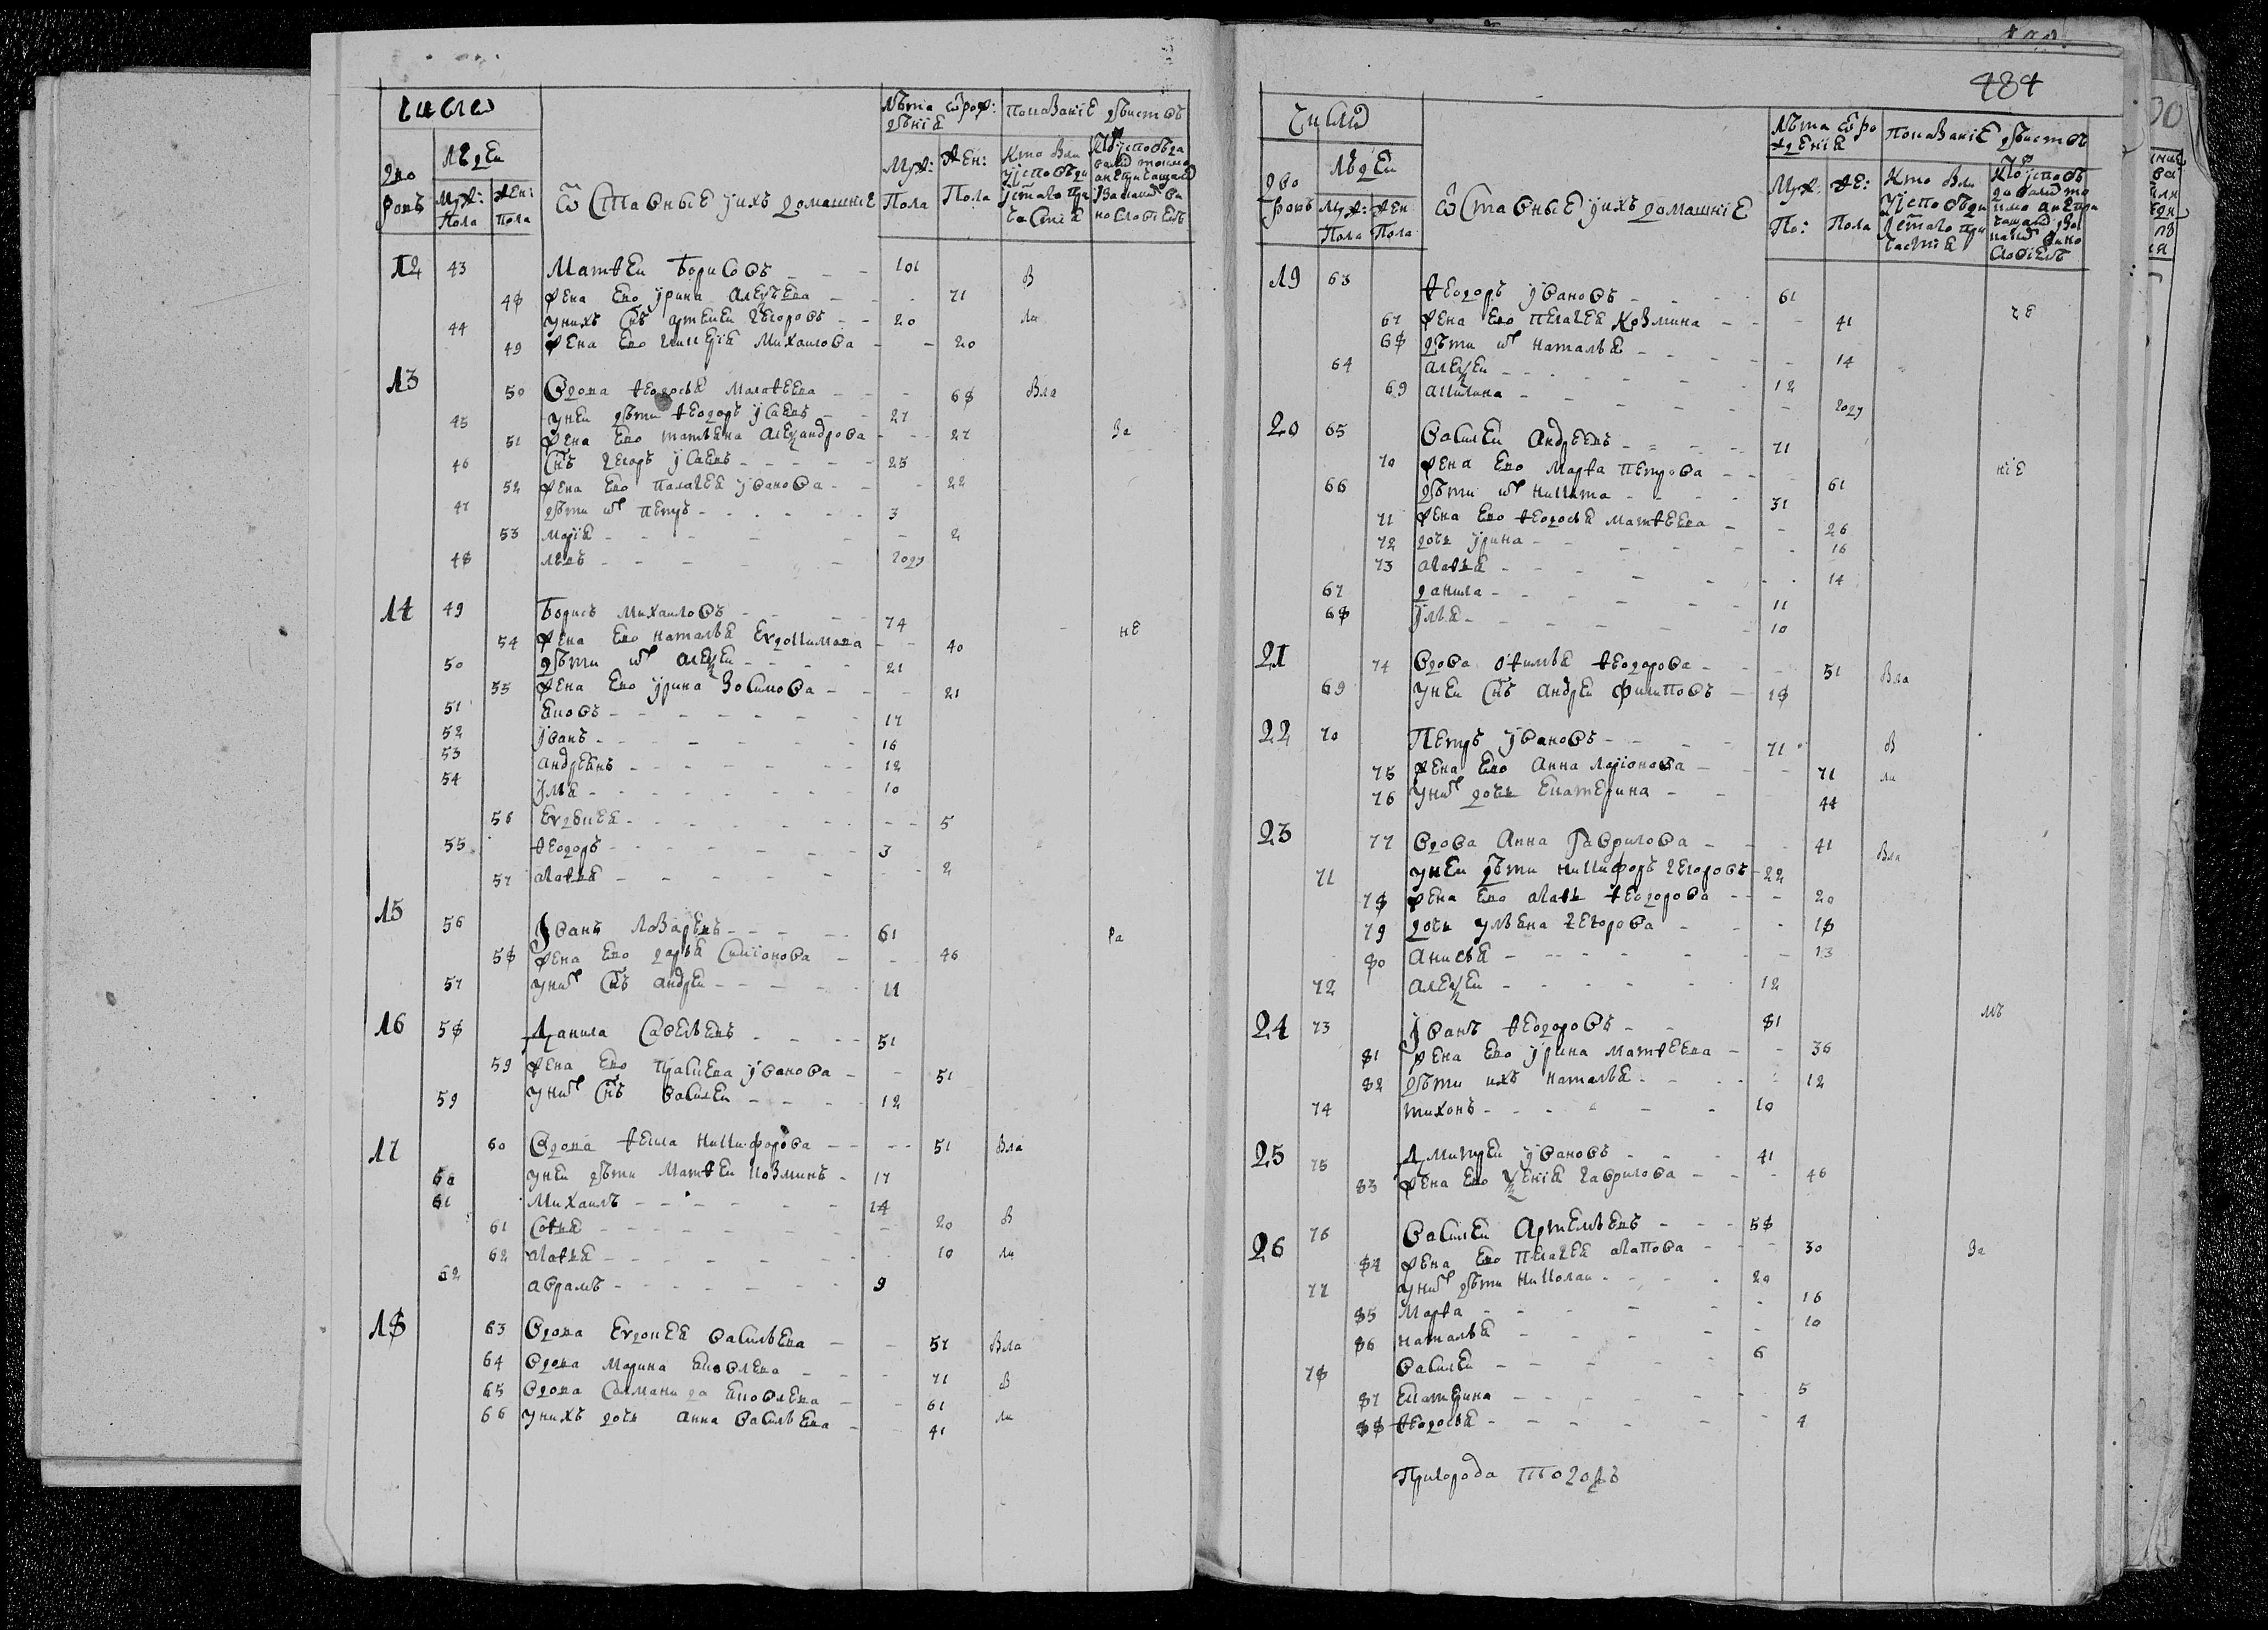 число
лѣта ѿ рож: дѣнія
показаніе дѣиствъ
дво ровъ
людеи
муж: пола
жен: пола
ѿставные ј ихъ домашние
муж: пола
жен: пола
12 43 Матѳеи Борисовъ 101 в
48 жена ево јрина алеѯѣева 71
44 у нихъ снъ артемеи гегоровъ 20 ли
49 жена ево Михаилова 20
13 50 вдова ѳеодосья матѳеева 68 вла
45 у неи дѣти ѳеодоръ јсаевъ 27
51 жена ево татьяна алеѯандрова 27 за
46 снъ гегоръ јсаевъ 25
52 жена ево палагея јванова 22
47 дѣти их петръ 3
53 марія 2
48 левъ году
14 49 Борисъ михаиловъ 74
54 жена ево наталья евдокимова 40 не
50 дѣти их алеѯеи 21
55 жена ево јрина зосимова 21
51 яковъ 17
52 јванъ 16
53 андреянъ 12
54 јлья 10
56 евдокея 5
55 ѳеодоръ 3
57 агаѳья 2
15 56 Јванъ лазаревъ 61 ра
58 жена ево дарья симіонова 46
57 у них снъ андреи 11
16 58 Данила савельевъ 51
59 жена ево прасковя јванова 51
59 у них снъ василеи 12
17 60 вдова ѳекла никифорова 51 вла
60 у неи дѣти матѳеи козминъ 17
61 михаилъ 14
61 софья 20 в
62 агаѳья 10 ли
62 аврамъ 9
18 63 вдова евдокея васильева 57 вла
64 вдова марина яковлева 71 в
65 вдова яковлева 61
66 у нихъ дочь анна васильева 41 ли
484
число
лѣта ѿ ро жденія
показаніе дѣиствъ
дво ровъ
людеи
муж: пола
жен пола
ѿставные ј ихъ домашніе
муж: по:
же: пола
19 63 ѳеодоръ јвановъ 61
67 жена ево пелагея козмина 41 че
68 дѣти их наталья 14
64 алеѯеи 12
69 акилина году
20 65 василеи андрѣевъ 71
70 жена ево марѳа петрова 61 ніе
66 дѣти их никита 31
71 жена ево ѳеодосья матѳеева 26
72 дочь јрина 16
73 агаѳья 14
67 данила 11
68 јлья 10
21 74 вдова офимья ѳеодорова 51 вла
69 у неи снъ андреи филиповъ 18
22 70 Петръ јвановъ 71 в
75 жена ево анна ларіонова 71 ли
76 у них дочь екатерина 44
23 77 вдова анна гаврилова 41 вла
71 у неи дѣти никифоръ гегоровъ 22
78 жена ево агаѳья ѳеодорова 20
79 дочь ульяна гегорова 18
80 анисья 13
72 алеѯеи 12
24 73 Јванъ ѳеодоровъ 81 мъ
81 жена ево јрина матѳеева 36
82 дѣти ихъ наталья 12
74 тихонъ 10
25 75 Дмитреи јвановъ 41
83 жена ево ѯенія гаврилова 46
26 76 василеи артемьевъ 58
84 жена ево пелагея агапова 30 за
77 у них дѣти николаи 20
85 марѳа 16
86 наталья 10
78 василеи 6
87 екатерина 5
88 ѳеодосья 4